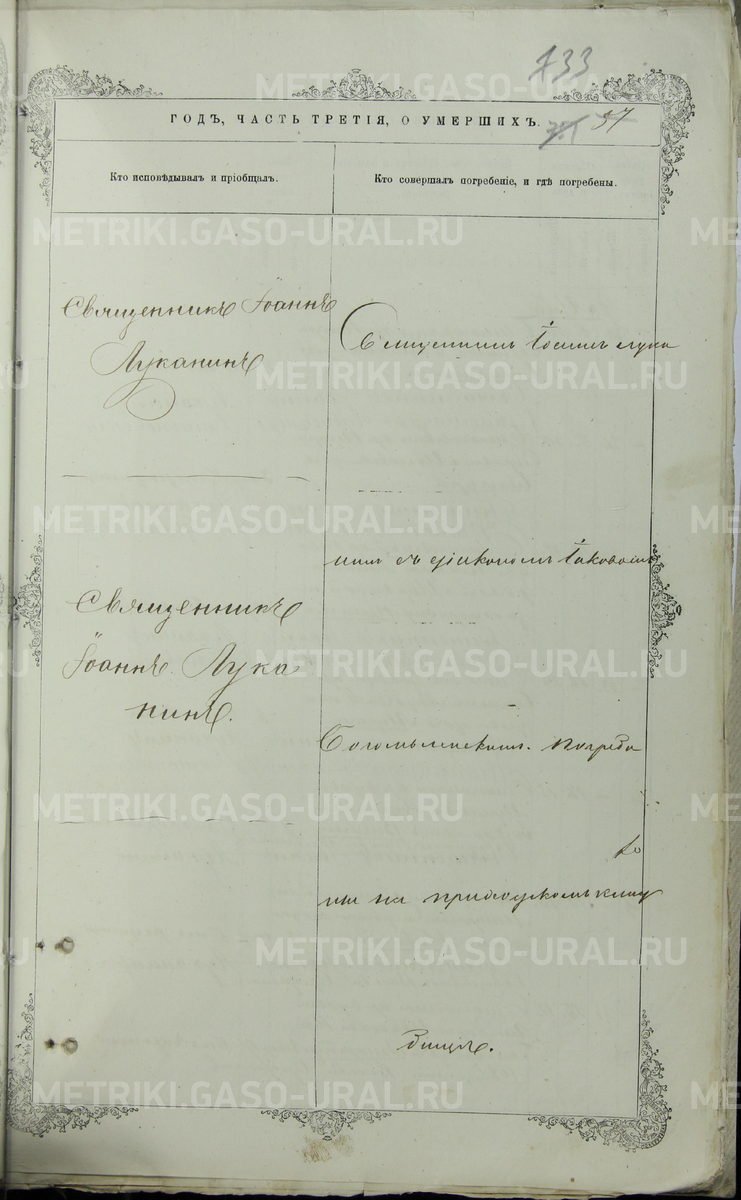 133
57
ГОДЪ, ЧАСТЬ ТРЕТІЯ, О УМЕРШИХЪ.
Кто исповѣдывалъ и пріобщалъ.
Кто совершалъ погребеніе, и гдѣ погребены.
Священникъ Іоаннъ
Луканинъ
Священникъ
Іоаннъ Лука
нинъ.
Священникъ Іоаннъ Лука
нинъ съ діакономъ Іаковомъ
Богомъ погребе
ны на приходскомъ клад
бищѣ.
METRIKI.GASO-URAL.RU